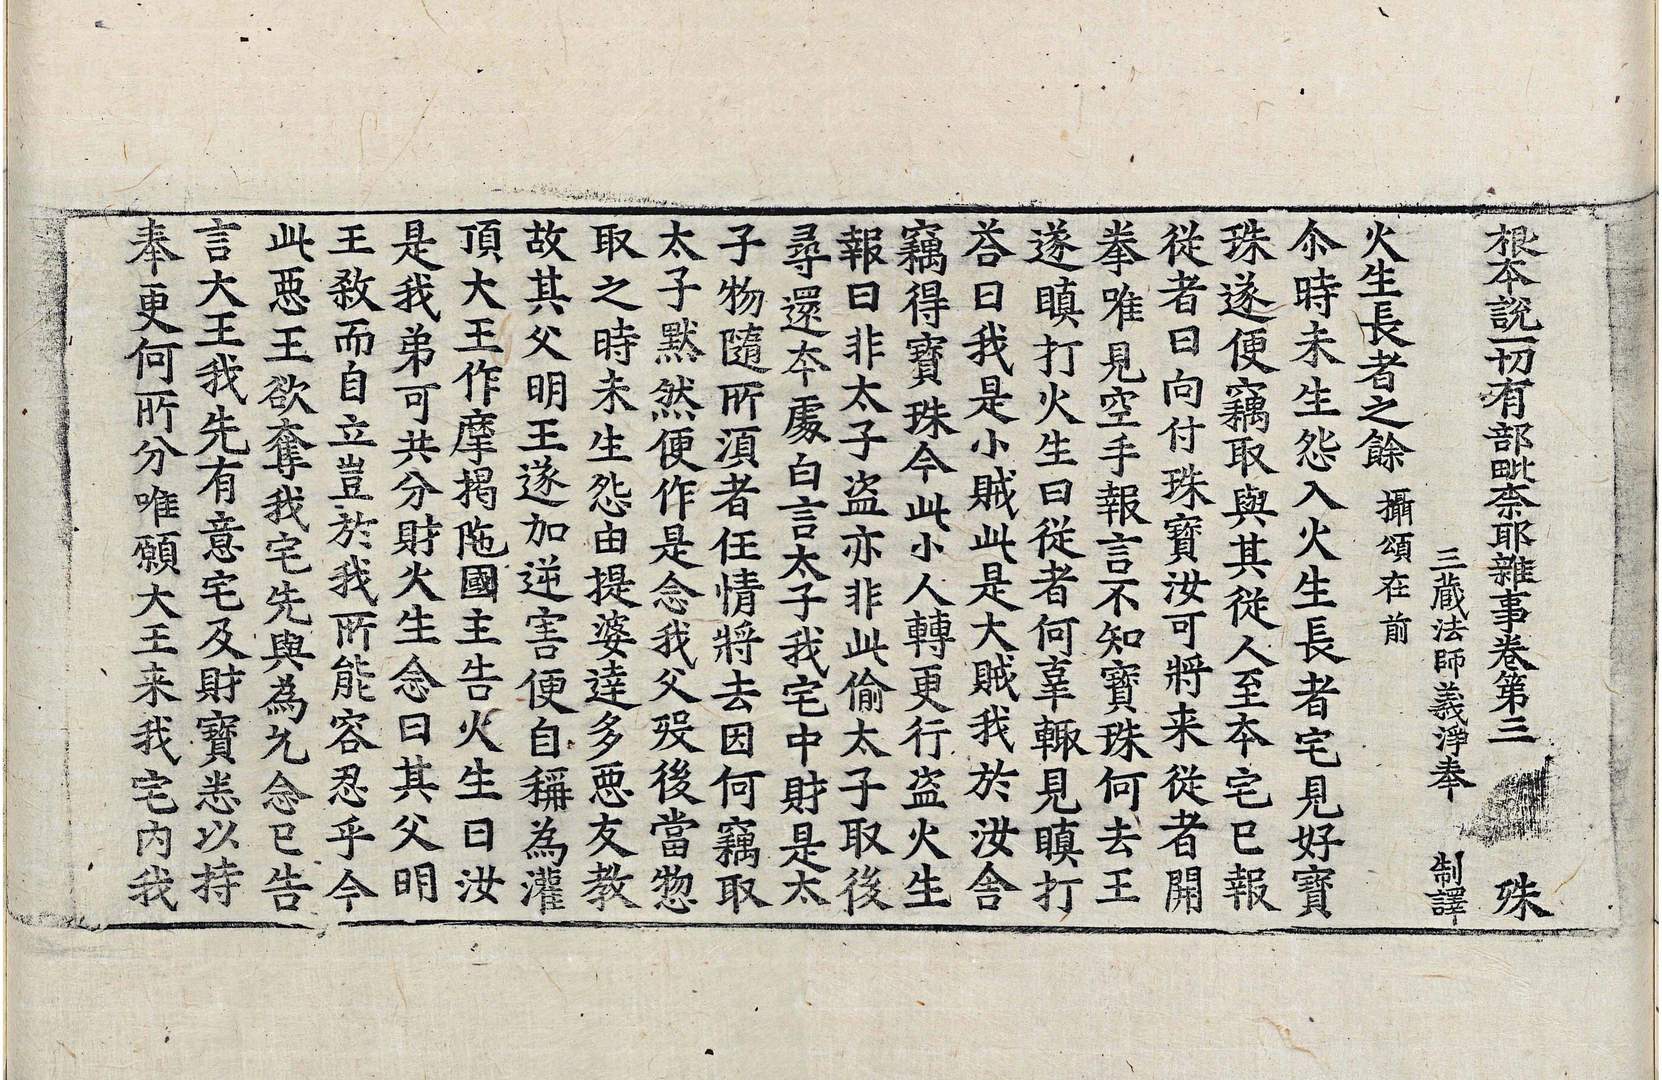 根本說一切有部毗柰耶雜事卷第三 殊
三藏法師義淨奉 制譯
火生長者之餘 攝頌在前
尒時未生怨入火生長者宅見好寶
珠遂便竊取與其從人至本宅已報
從者曰向付珠寶汝可將来從者開
拳唯見空手報言不知寶珠何去王
遂瞋打火生曰從者何辜輙見瞋打
荅曰我是小賊此是大賊我於汝舍
竊得寶珠今此小人轉更行盜火生
報曰非太子盜亦非此偷太子取後
尋還本處白言太子我宅中財是太
子物隨所湏者任情將去因何竊取
太子默然便作是念我父歿後當惣
取之時未生怨由提婆達多惡友教
故其父明王遂加逆害便自稱為灌
頂大王作摩揭陁國主告火生曰汝
是我弟可共分財火生念曰其父明
王敎而自立豈於我所能容忍乎今
此惡王欲奪我宅先與為允念已告
言大王我先有意宅及財寶悉以持
奉更何所分唯願大王来我宅內我